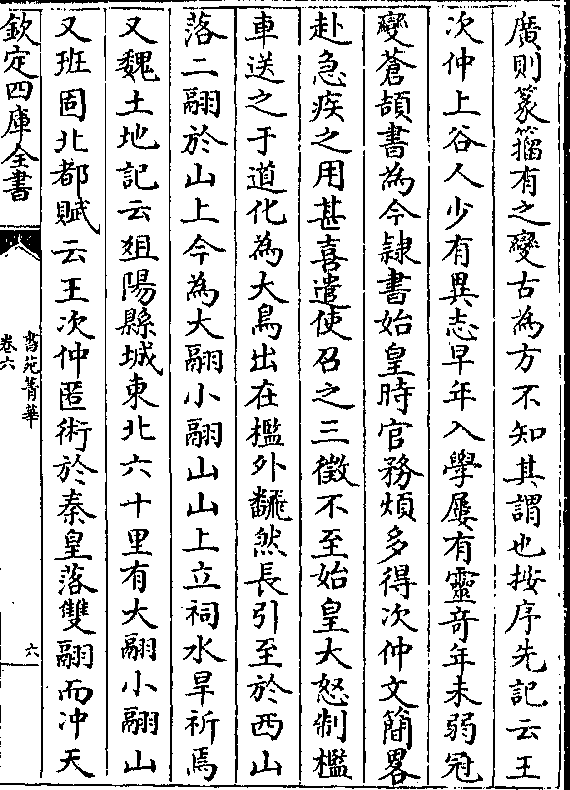 廣則篆籀有之變古為方不知其謂也按序先記云王
次仲上谷人少有異志早年入學屢有靈奇年未弱冠
變蒼頡書為今隷書始皇時官務煩多得次仲文簡畧
赴急疾之用甚喜遣使召之三徵不至始皇大怒制檻
車送之于道化為大鳥出在檻外翻然長引至於西山
落二翮於山上今為大翮小翮山山上立祠水旱祈焉
又魏土地記云沮陽縣城東北六十里有大翮小翮山
又班固北都賦云王次仲匿術於秦皇落雙翮而冲天
欽定四庫全書
書苑菁華
卷六
六